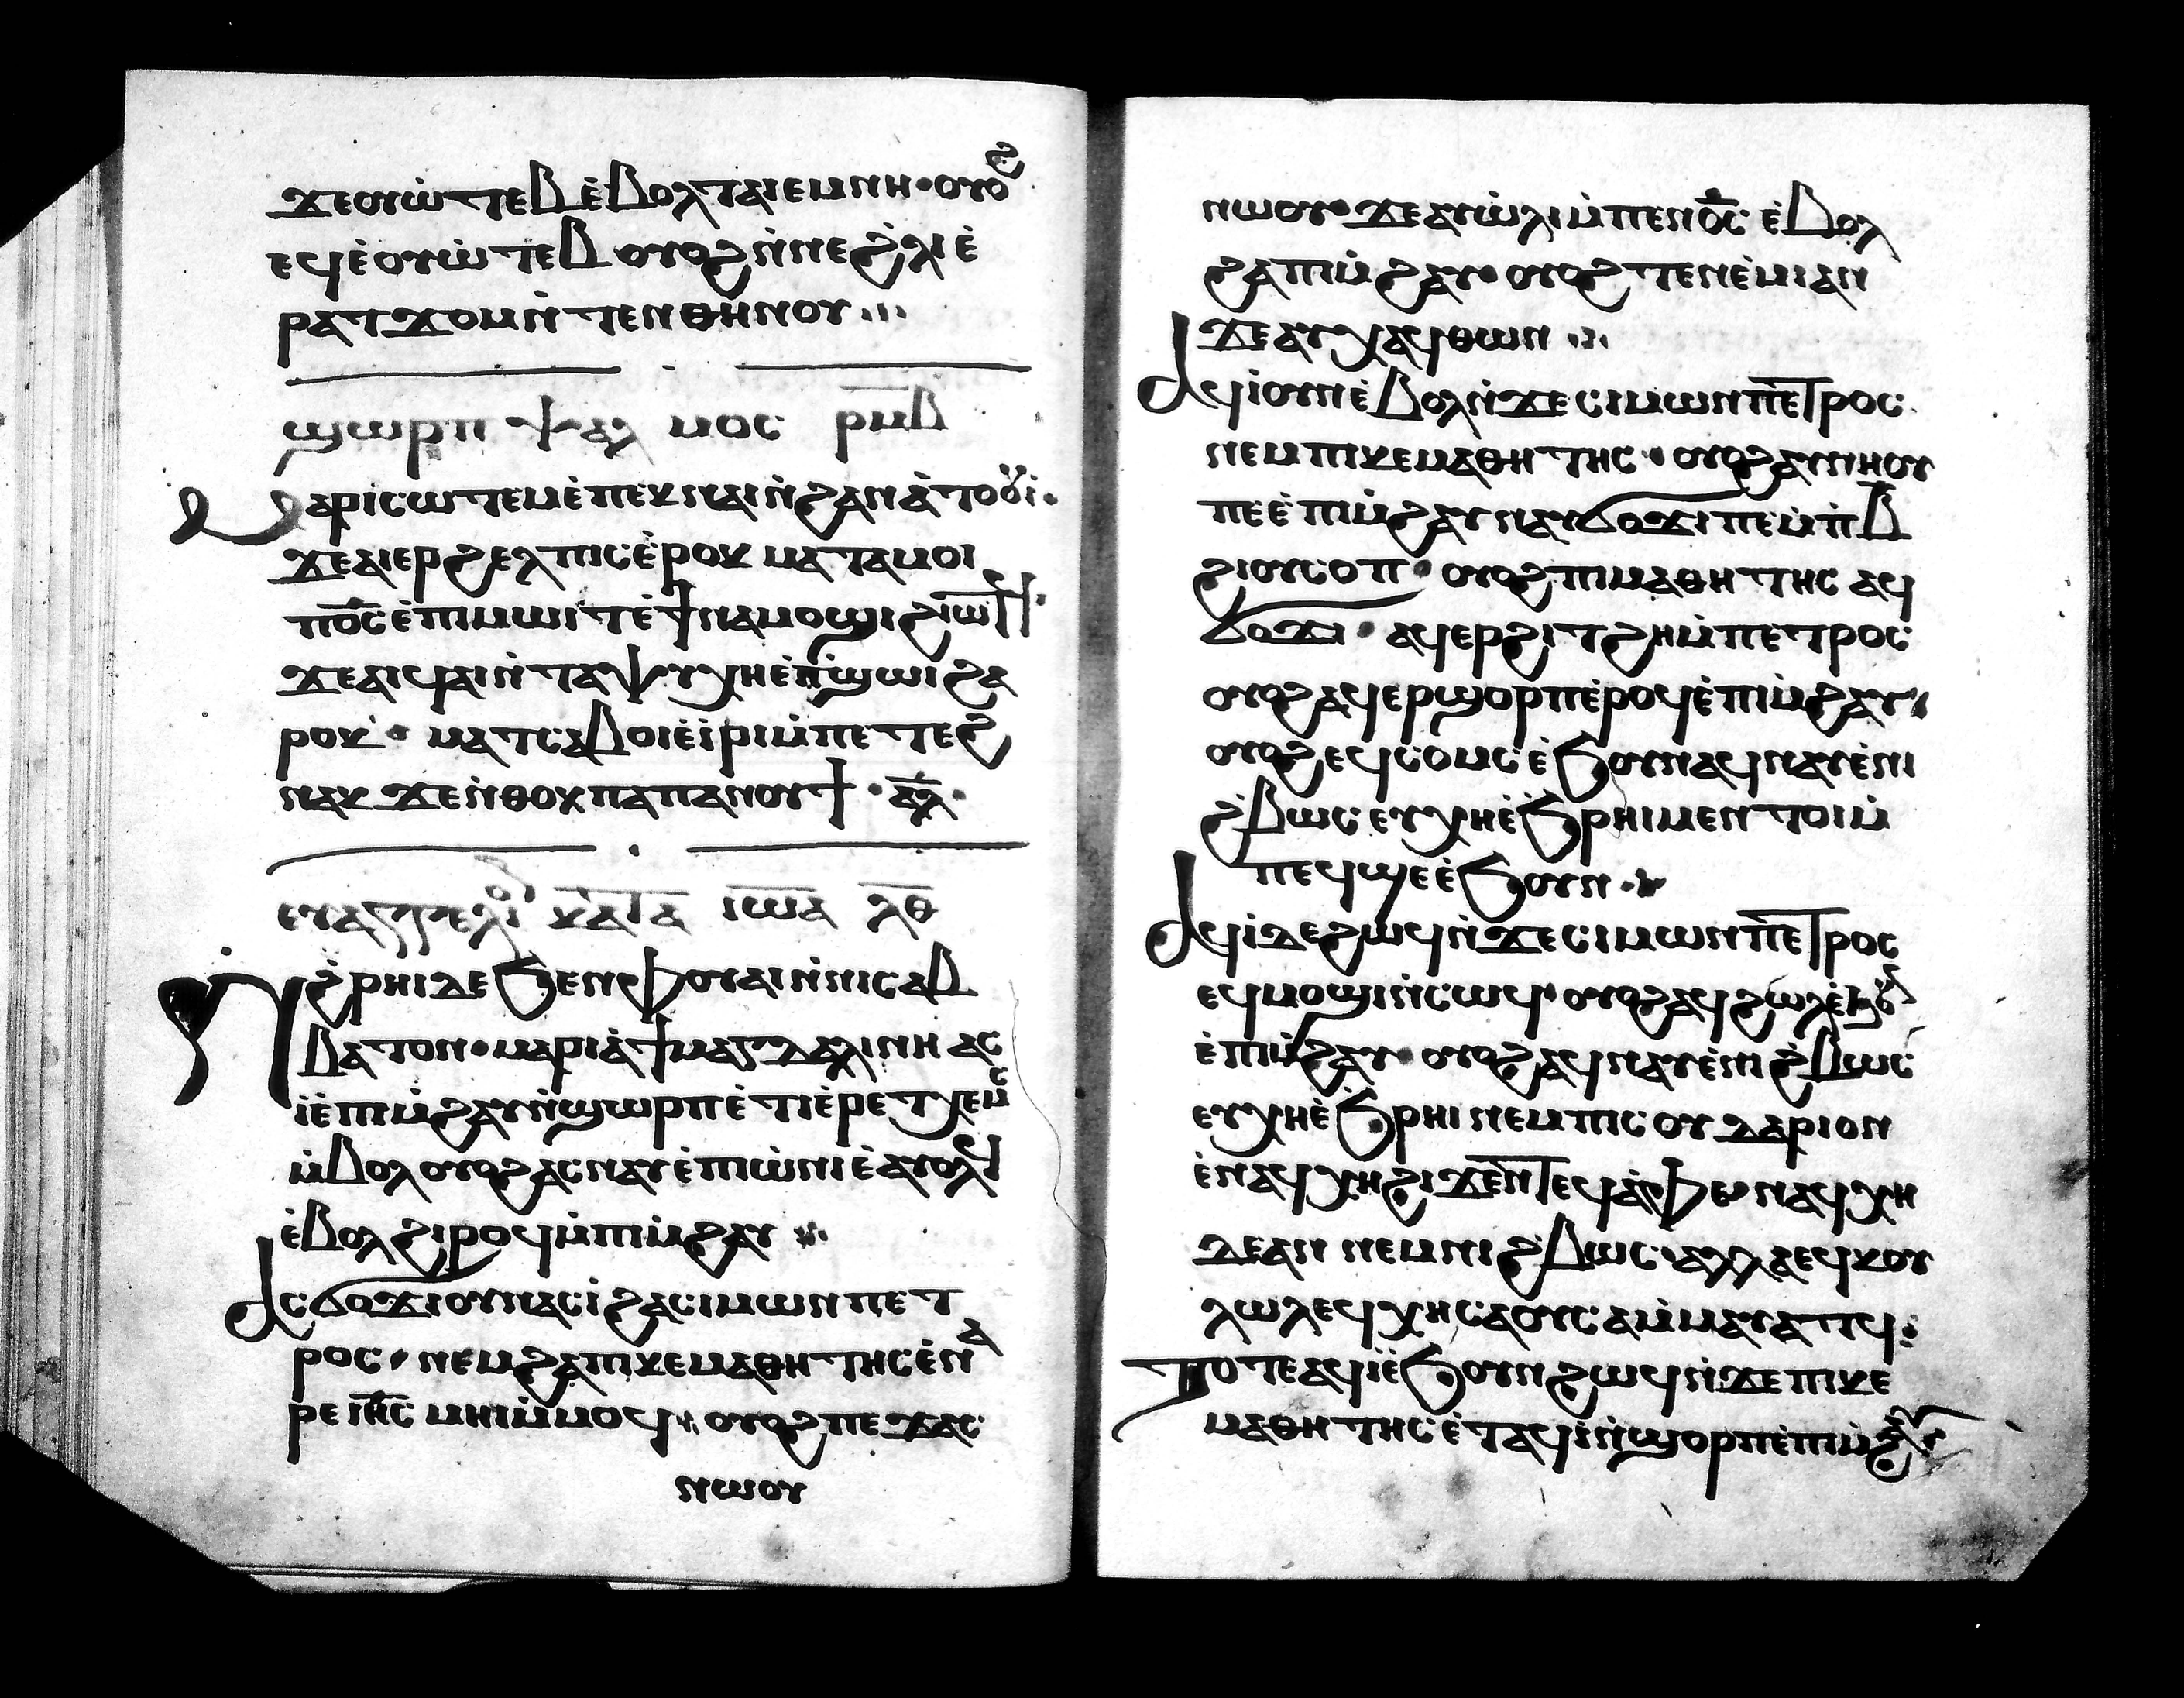 ϫⲉⲟⲩⲱ̀ⲧⲉⲃ ⲉ̀ⲃⲟⲗ ⲧⲁⲓ ⲉⲙⲛⲏ · ⲟⲩⲟϩ
ⲉϥⲉ̀ⲟⲩⲱ̀ⲧⲉⲃ ⲟⲩⲟϩ ⲛ̀ⲛⲉ ϩ̀ⲗⲓ ⲉ̀
ⲣⲁⲧϫⲟⲙ ⲛ̀ⲧⲉⲛⲑⲏⲛⲟⲩ ...
ϣⲱⲣⲡ ⲯⲁⲗⲙⲟⲥ ⲣⲙⲃ
ⲙⲁⲣⲓⲥⲱⲧⲉⲙ ⲉ̀ⲡⲉⲕⲛⲁⲓ ⲛ̀ϩⲁⲛⲁ̀ⲧⲟⲟⲩⲓ̀ ·
ϫⲉ ⲁⲓⲉⲣϩⲉⲗⲡⲓⲥ ⲉ̀ⲣⲟⲕ ⲙⲁⲧⲁⲙⲟⲓ
ⲡⲟ̅ⲥ̅ ⲉ̀ⲡⲓⲙⲱⲓⲧ ⲉ̀ϯⲛⲁⲙⲟϣⲓ ϩⲓⲱⲧϥ ·
ϫⲉ ⲁⲓϥⲁⲓ ⲛ̀ⲧⲁⲯⲩⲭⲏ ⲉ̀ⲡϣⲱⲓ ϩⲁ
ⲣⲟⲕ · ⲙⲁⲧⲥⲁⲃⲟⲓ ⲉ̀ⲓ̀ⲣⲓ ⲙ̀ⲡⲉⲧⲉϩ
ⲛⲁⲕ ϫⲉ ⲛ̀ⲑⲟⲕ ⲡⲁ ⲡⲁⲛⲟⲩϯ · ⲁⲗ ·
ⲉⲩⲁⲅⲅⲉⲗⲓⲟ ⲕⲁⲧⲁ ⲓⲱⲁ ⲗⲑ
ⲛ̀ϩ̀ⲣⲏⲓ ⲇⲉ ϧⲉⲛ ⲫⲟⲩⲁⲓ ⲛ̀ⲛⲓⲥⲁⲃ
ⲃⲁⲧⲟⲛ · ⲙⲁⲣⲓⲁ̀ ϯⲙⲁⲅⲇⲁⲗⲓⲛⲏ ⲁⲥ
ⲓ̀ ⲉ̀ⲡⲓⲙ̀ϩⲁⲩ ⲛ̀ϣⲱⲣⲡ ⲉ̀ⲧⲓ ⲉ̀ⲣⲉ ⲧⲭⲉⲙⲥ
ⲙ̀ⲃⲟⲗ ⲟⲩⲟϩ ⲁⲥⲛⲁⲩ ⲉ̀ⲡⲓⲱ̀ⲛⲓ ⲉ̀ⲁⲩⲟⲗϥ
ⲉ̀ⲃⲟⲗ ϩⲓⲣⲟϥ ⲙ̀ⲡⲓⲙ̀ϩⲁⲩ ...
ⲁⲥϭⲟϫⲓ ⲟⲩⲛ ⲁⲥⲓ̀ ϩⲁ ⲥⲓⲙⲱⲛ ⲡⲉⲧ
ⲣⲟⲥ · ⲛⲉⲙ ϩⲁ ⲡⲓⲕⲉⲙⲁⲑⲏⲧⲏⲥ ⲉ̀ⲛⲁ
ⲣⲉ ⲓⲏⲥ ⲙⲏⲓ ⲙ̀ⲙⲟϥ · ⲟⲩⲟϩ ⲡⲉϫⲁⲥ
ⲛⲱⲟⲩ
ⲛⲱⲟⲩ · ϫⲉ ⲁⲩⲱ̀ⲗⲓ ⲙ̀ⲡⲉⲛⲟ̅ⲥ̅ ⲉ̀ⲃⲟⲗ
ϩⲁ ⲡⲓⲙ̀ϩⲁⲩ · ⲟⲩⲟϩ ⲧⲉⲛⲉ̀ⲙⲓ ⲁⲛ
ϫⲉ ⲁⲩⲭⲁϥ ⲑⲱⲛ ...
ⲁϥⲓ̀ ⲟⲩⲛ ⲉ̀ⲃⲟⲗ ⲛ̀ϫⲉ ⲥⲓⲙⲱⲛ ⲡⲉⲧⲣⲟⲥ
ⲛⲉⲙ ⲡⲓⲕⲉⲙⲁⲑⲏⲧⲏⲥ · ⲟⲩⲟϩ ⲁⲩⲛⲏⲟⲩ
ⲡⲉ ⲉ̀ⲡⲓⲙ̀ϩⲁⲩ ⲛⲁⲩϭⲟϫⲓ ⲡⲉ ⲙ̀ⲡⲃ̅
ϩⲓⲟⲩⲥⲟⲡ · ⲟⲩⲟϩ ⲡⲓⲙⲁⲑⲏⲧⲏⲥ ⲁϥ
ϭⲟϫⲓ · ⲁϥⲉⲣϩⲓⲧϩⲏ ⲙ̀ⲡⲉⲧⲣⲟⲥ
ⲟⲩⲟϩ ⲁϥⲉⲣϣⲟⲣⲡ ⲉ̀ⲣⲟϥ ⲉ̀ⲡⲓⲙ̀ϩⲁⲩ ·
ⲟⲩⲟϩ ⲉϥⲥⲟⲙⲥ ⲉ̀ϧⲟⲩⲛ ⲁϥⲛⲁⲩ ⲉ̀ⲛⲓ
ϩ̀ⲃⲱⲥ ⲉⲩⲭⲏ ⲉ̀ϧⲣⲏⲓ ⲙⲉⲛⲧⲟⲓ ⲙ̀
ⲡⲉϥϣⲉ ⲉ̀ϧⲟⲩⲛ ...
ⲁϥⲓ̀ ⲇⲉ ϩⲱϥ ⲛ̀ϫⲉ ⲥⲓⲙⲱⲛ ⲡⲉⲧⲣⲟⲥ
ⲉϥⲙⲟϣⲓ ⲛ̀ⲥⲱϥ · ⲟⲩⲟϩ ⲁϥϩⲱⲗ ⲉ̀ϧⲟⲩ
ⲉ̀ⲡⲓⲙ̀ϩⲁⲩ · ⲟⲩⲟϩ ⲁϥⲛⲁⲩ ⲉ̀ⲛⲓ ϩ̀ⲃⲱⲥ
ⲉⲩⲭⲏ ⲉ̀ϧⲣⲏⲓ ⲛⲉⲙ ⲡⲓⲥⲟⲩⲇⲁⲣⲓⲟⲛ
ⲉ̀ⲛⲁϥⲭⲏ ϩⲓϫⲉⲛ ⲧⲉϥⲁ̀ⲫⲉ ⲛⲁϥⲭⲏ
ⲇⲉ ⲁⲛ ⲛⲉⲙ ⲛⲓϩ̀ⲃⲱⲥ · ⲁⲗⲗⲁ ⲉϥⲕⲟⲩ
ⲗⲱⲗ ⲉϥⲭⲏ ⲥⲁ ⲟⲩⲥⲁ ⲙ̀ⲙⲁⲩⲁⲧϥ :
ⲧⲟⲧⲉ ⲁϥⲓ̀ ⲉ̀ϧⲟⲩⲛ ϩⲱϥ ⲛ̀ϫⲉ ⲡⲓⲕⲉ
ⲙⲁⲑⲏⲧⲏⲥ ⲉ̀ⲧⲁϥⲓ̀ ⲛ̀ϣⲟⲣⲡ ⲉ̀ⲡⲓⲙ̀ϩⲁⲩ